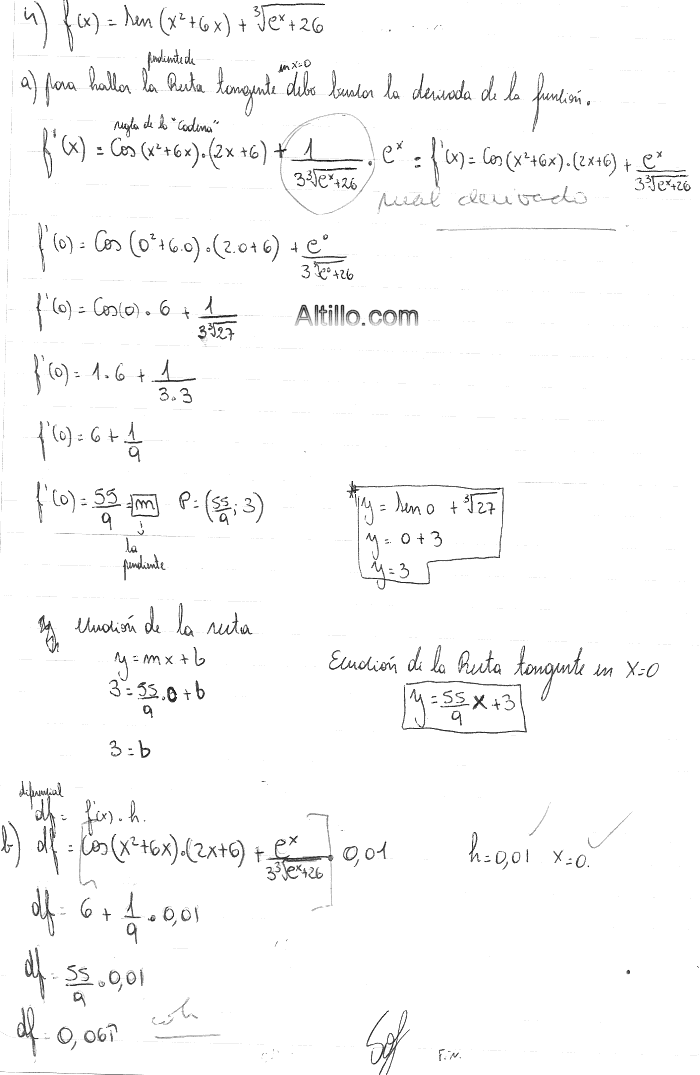 4) f(x) = sen (x²+6x) + ∛(eˣ+26)
pendiente de
en x=0
a) para hallar la Recta tangente debo buscar la derivada de la función.
regla de la "Cadena"
f'(x) = Cos(x²+6x).(2x+6) + 1/(3∛(eˣ+26)) . eˣ = f'(x) = Cos(x²+6x).(2x+6) + eˣ/(3∛(eˣ+26))
mal derivado
f'(0) = Cos (0²+6.0).(2.0+6) + e⁰/(3∛(e⁰+26))
f'(0) = Cos(0) . 6 + 1/(3∛27)
Altillo.com
f'(0) = 1.6 + 1/(3.3)
f'(0) = 6 + 1/9
f'(0) = 55/9 = m P = (55/9; 3)
la
pendiente
* y = sen 0 + ∛27
y = 0+3
y = 3
ecuación de la recta
y = mx + b
3 = 55/9 . 0 + b
3 = b
Ecuación de la Recta tangente en X=0
y = 55/9 x + 3
diferencial
df = f'(x) . h
b) df = [Cos(x²+6x).(2x+6) + eˣ/(3∛(eˣ+26))] . 0,01 h=0,01 x=0.
df = 6 + 1/9 . 0,01
df = 55/9 . 0,01
df = 0,061
F.N.